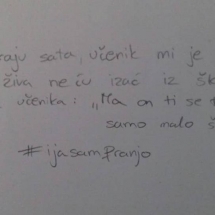 raju sata, učenik mi je
živa neću izać iz šk
učenika: "Ma on ti se
samo malo š
#ijasamPranjo